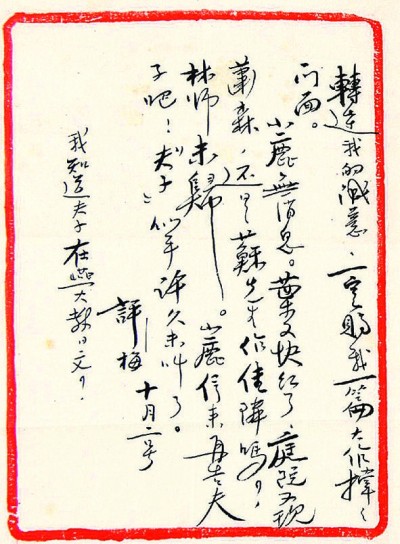 轉達我的誠意,一定賜我一篇大作撐々
門面。
小鹿無消息。葉又快紅了,庭院又現
蕭森,還蘇先生作佳隣嗎?
林師未歸——。小鹿信來再告夫
子吧!“夫子”似乎許久未叫了。
評梅 十月二号
我知道夫子在燕大教日文了.